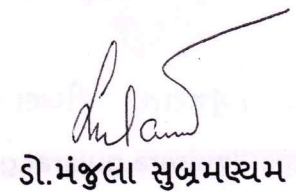 ડો.મંજુલા સુબ્રમણ્યમ